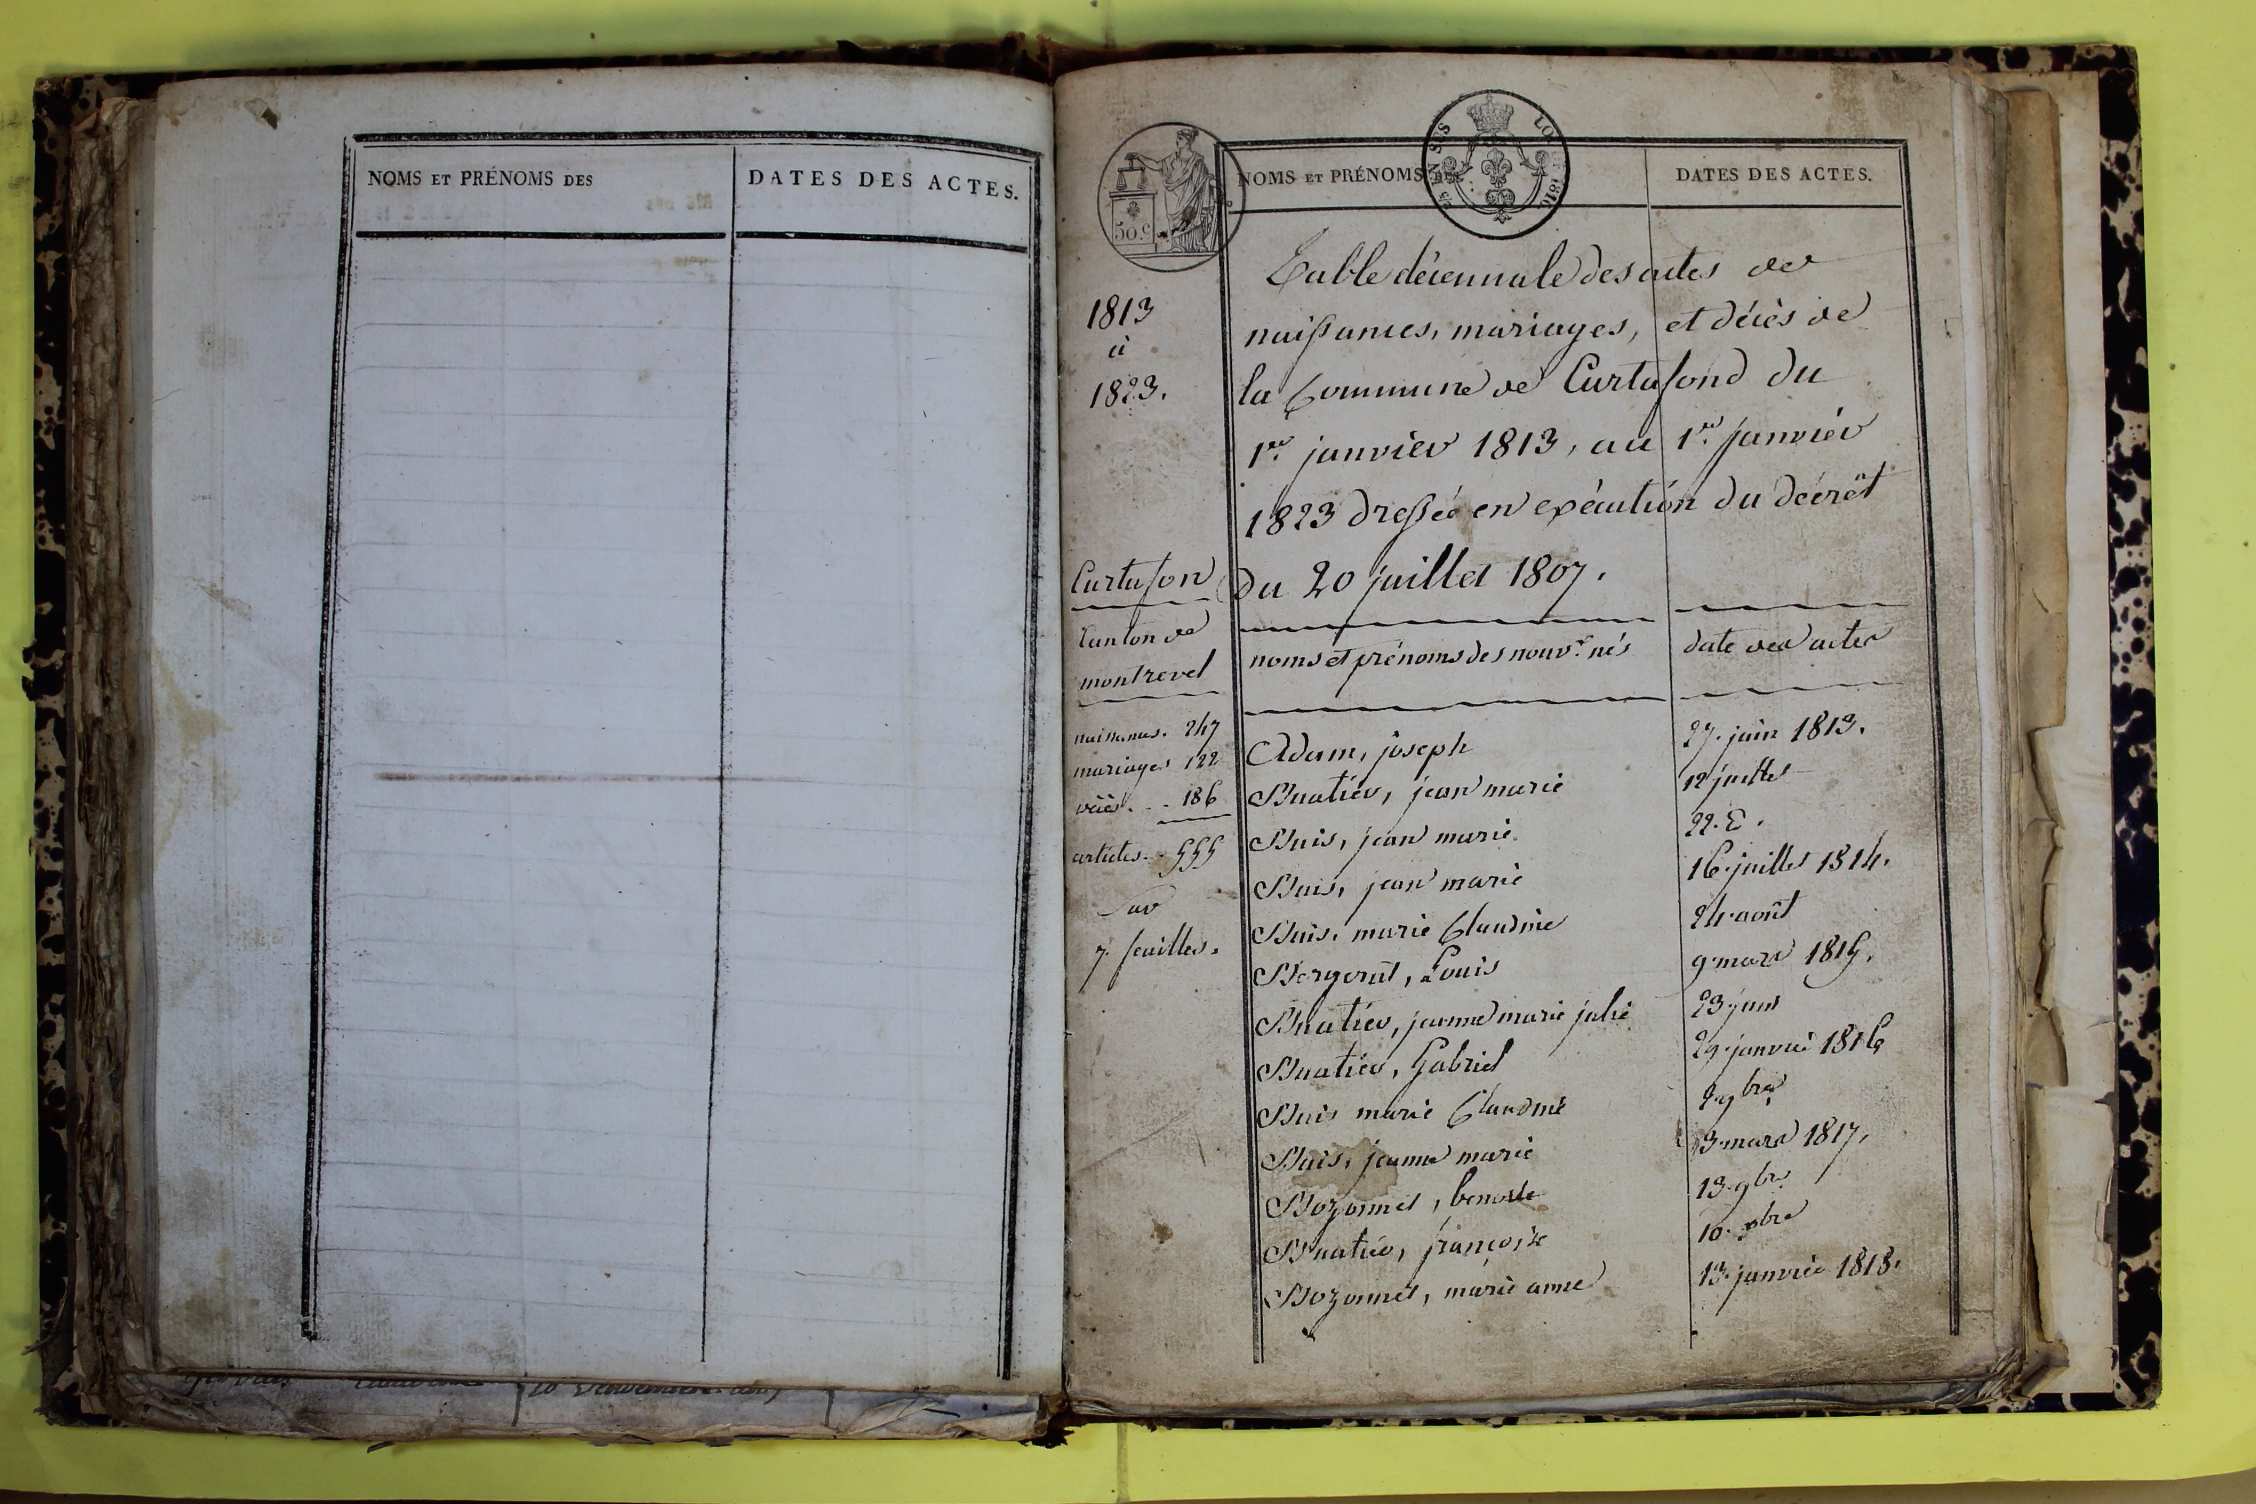 NOMS ET PRÉNOMS DES
DATES DES ACTES.
NOMS ET PRÉNOMS DES
DATES DES ACTES.
50.c
Table décennale des actes de
naissances, mariages, et décès de
la Commune de Curtafond du
1er janvier 1813, au 1er janvier
1823 dressée en exécution du décrêt
du 20 juillet 1807.
1813
à
1823.
Curtafon
Canton de
montrevel
naissances. 247
mariages 122
décès. - - 186
articles. - 555
sur
7. feuilles.
noms et prénoms des nouv. nés
date des actes
Adam, joseph 27. juin 1813.
Buatier, jean marie 12 juillet
Buis, jean marie 22. D.
Buis, jean marie 16. juillet 1814.
Buis, marie Claudine 24. août
Bergerut, Louis 9. mars 1815.
Buatier, jeanne marie julie 23. juin
Buatier, Gabriel 29. janvier 1816
Buis marie Claudine 2. 9bre
Buis, jeanne marie 3. mars 1817.
Bozonnet, benoite 13. 9bre
Buatier, françoise 10. xbre
Bozonnet, marie anne 13. janvier 1818.